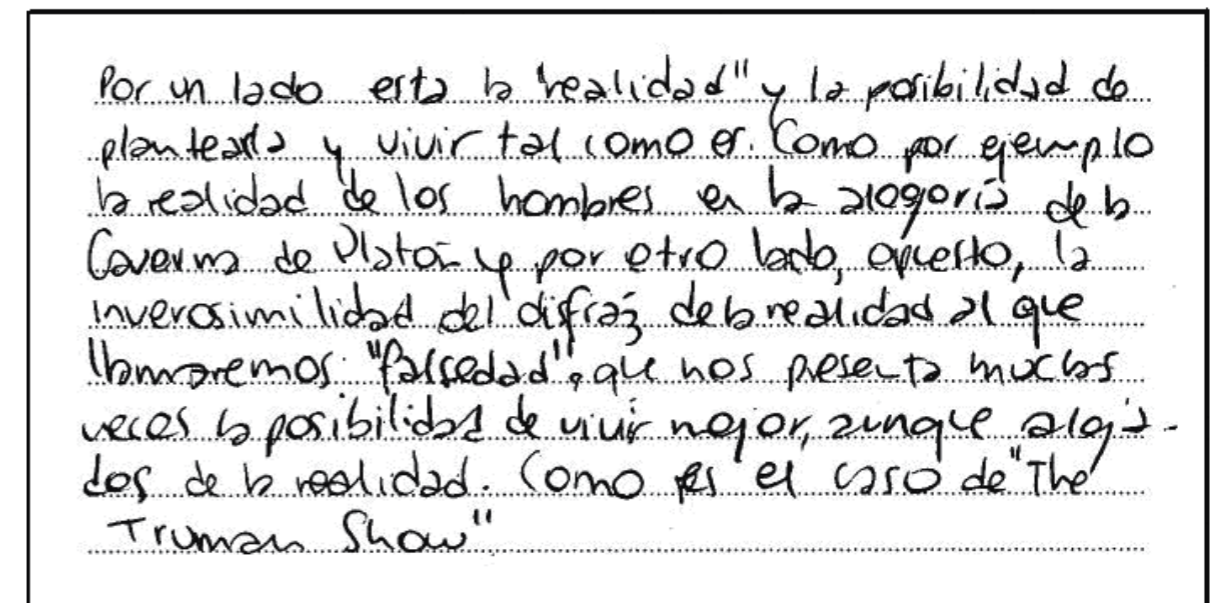 Por un lado esta la "realidad" y la posibilidad de
plantearla y vivir tal como es. Como por ejemplo
la realidad de los hombres en la alegoría de la
Caverna de Platón y por otro lado, opuesto, la
inverosimilidad del disfraz de la realidad al que
llamaremos "falsedad", que nos presenta muchas
veces la posibilidad de vivir mejor, aunque aleja-
dos de la realidad. Como es el caso de "The
Truman Show"